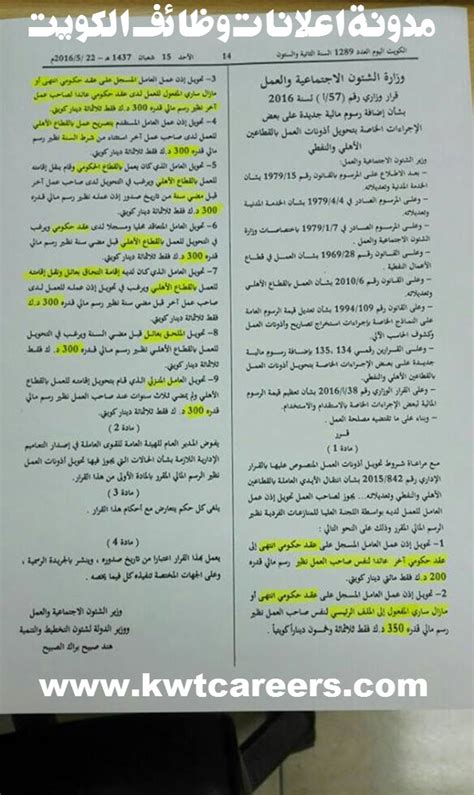 مدونة اعلانات وظائف الكويت
الكويت اليوم العدد 1289 السنة الثانية والستون
14
الأحد 15 شعبان 1437 هـ - 22 /5/ 2016م
وزارة الشئون الاجتماعية والعمل
قرار وزاري رقم (57/ا) لسنة 2016
بشأن إضافة رسوم مالية جديدة على بعض
الإجراءات الخاصة بتحويل أذونات العمل بالقطاعين
الأهلي والنفطي
وزير الشئون الاجتماعية والعمل:
- بعد الاطلاع على المرسوم بالقانون رقم 1979/15 بشأن
الخدمة المدنية وتعديلاته.
- وعلى المرسوم الصادر في 1979/4/4 بشأن الخدمة المدنية
وتعديلاته.
- وعلى المرسوم الصادر في 1979/1/7 باختصاصات وزارة
الشئون الاجتماعية والعمل.
- وعلى القانون رقم 1969/28 بشأن العمل في قطاع
الأعمال النفطية.
- وعلى القانون رقم 2010/6 بشأن العمل بالقطاع الأهلي
وتعديلاته.
- وعلى القانون رقم 1994/109 بشأن تعديل قيمة الرسوم العامة
على النماذج الخاصة بإجراءات استخراج تصاريح وأذونات العمل
وكشوف الحاسب الآلي.
- وعلى القرارين رقمي 134، 135 بإضافة رسوم مالية
جديدة على بعض الإجراءات الخاصة بتحويل أذونات العمل
بالقطاعين الأهلي والنفطي.
- وعلى القرار الوزاري رقم 38/ا/2016 بشأن تعظيم قيمة الرسوم
المالية لبعض الإجراءات الخاصة بالاستقدام والاستخدام.
- وبناء على ما تقتضيه مصلحة العمل.
قرر
( مادة 1 )
مع مراعاة شروط تحويل أذونات العمل المنصوص عليها بالقرار
الإداري رقم 2015/842 بشأن انتقال الأيدي العاملة بالقطاع
الأهلي وتعديلاته... يجوز لصاحب العمل تحويل إذن عمل
العامل المسجل لديه بواسطة اللجنة العليا للمنازعات الفردية نظير
الرسم المالي المقرر وذلك على النحو التالي:
1- تحويل إذن عمل العامل المسجل على عقد حكومي انتهى إلى
عقد حكومي آخر عائدا لنفس صاحب العمل نظير رسم مالي قدره
200 د.ك فقط مائتي دينار كويتي.
2- تحويل إذن عمل العامل المسجل على عقد حكومي انتهى أو
مازال ساري المفعول إلى الملف الرئيسي لنفس صاحب العمل نظير
رسم مالي قدره 350 د.ك فقط ثلاثمائة وخمسون ديناراً كويتياً.
3- تحويل إذن عمل العامل المسجل على عقد حكومي انتهى أو
مازال سري المفعول للعمل لدى عقد حكومي عائدا لصاحب عمل
آخر نظير رسم مالي قدره 300 د.ك فقط ثلاثمائة دينار كويتي.
4- تحويل إذن عمل العامل المستقدم بتصريح عمل بالقطاع الأهلي
للعمل لدى صاحب عمل آخر استثناء من شرط السنة نظير رسم
مالي قدره 300 د.ك فقط ثلاثمائة دينار كويتي.
5- تحويل العامل الذي كان يعمل بالقطاع الحكومي وقام بنقل إقامته
للعمل بالقطاع الأهلي ويرغب في التحويل لدى صاحب عمل آخر
قبل مضي سنة من تاريخ صدور إذن عمله نظير رسم مالي قدره
300 د.ك فقط ثلاثمائة دينار كويتي.
6- تحويل العامل المتعاقد عليا ومسجلا لدى عقد حكومي ويرغب
في التحويل للعمل بالقطاع الأهلي قبل مضي سنة نظير رسم مالي
قدره 300 د.ك فقط ثلاثمائة دينار كويتي.
7- تحويل العامل الذي كان لديه إقامة التحاق بعائل ونقل إقامته
للعمل بالقطاع الأهلي ويرغب في تحويل إذن عمله للعمل لدى
صاحب عمل آخر قبل مضي سنة نظير رسم مالي قدره 300 د.ك
فقط ثلاثمائة دينار كويتي.
8- تحويل الملتحق بعائل قبل مضي السنة ويرغب في التحويل
للعمل بالقطاع الأهلي نظير رسم مالي قدره 300 د.ك فقط
ثلاثمائة دينار كويتي.
9- تحويل العامل المنزلي الذي قام بتحويل إقامته للعمل بالقطاع
الأهلي ولم يمضي ثلاث سنوات على عمله نظير رسم مالي
قدره 300 د.ك فقط ثلاثمائة دينار كويتي.
( مادة 2 )
يفوض المدير العام للهيئة العامة للقوى العاملة في إصدار التعاميم
الإدارية اللازمة بشأن الحالات التي يجوز فيها تحويل أذونات العمل
نظير الرسم المالي المقرر بالمادة الأولى من هذا القرار.
( مادة 3 )
يلغى كل حكم يتعارض مع أحكام هذا القرار.
( مادة 4 )
يعمل بهذا القرار اعتبارا من تاريخ صدوره، وينشر بالجريدة الرسمية،
وعلى الجهات المختصة تنفيذه كل فيما يخصه.
وزير الشئون الاجتماعية والعمل
ووزير الدولة لشئون التخطيط والتنمية
هند صبيح براك الصبيح
www.kwtcareers.com